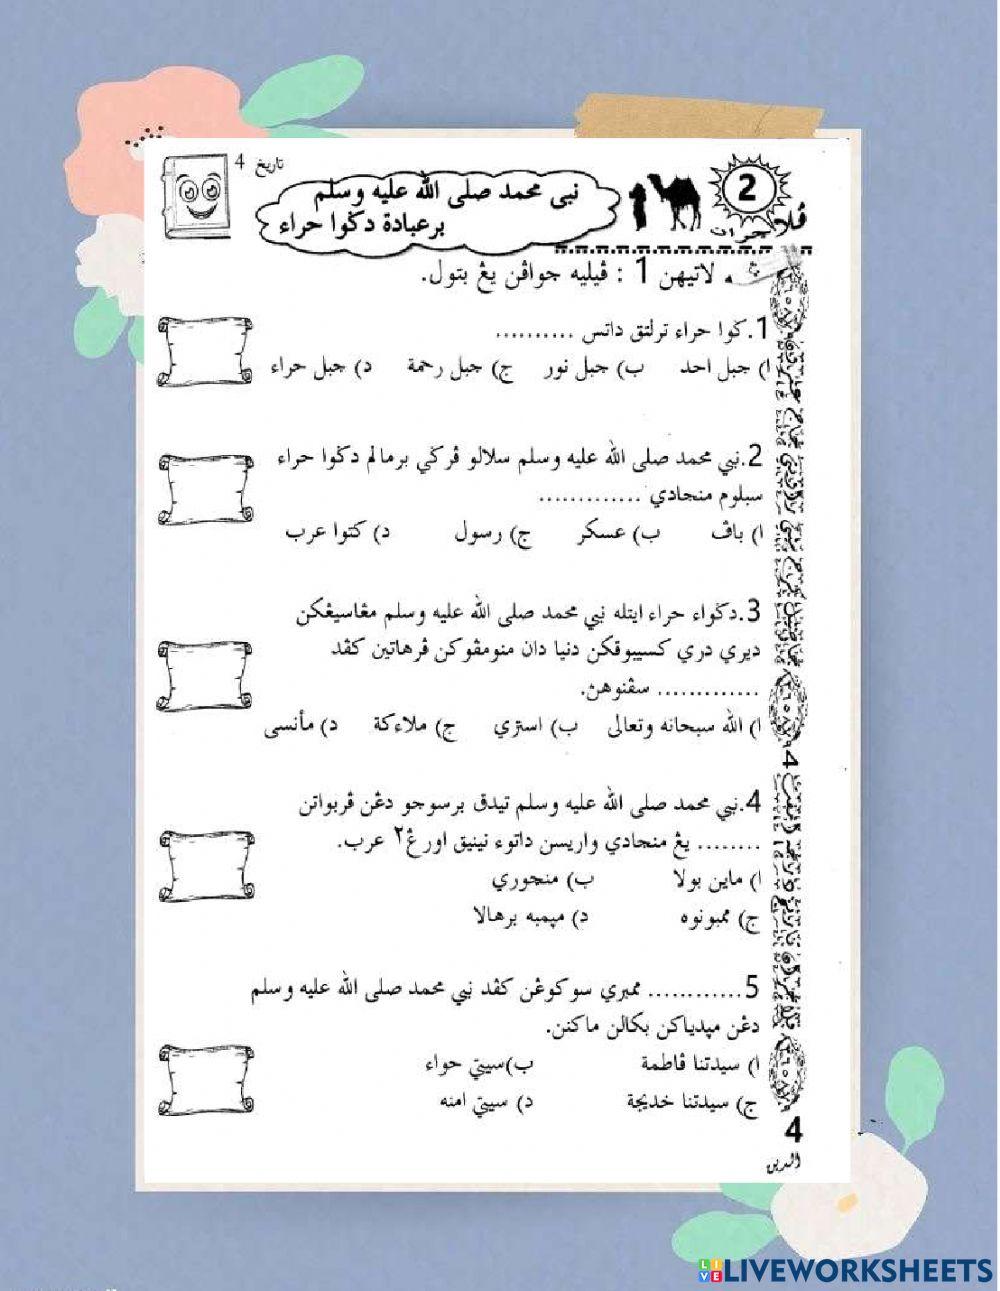 تاريخ 4
نبي محمد صلى الله عليه وسلم
برعبادة دݢوا حراء
2
ڤلاجران
لاتيهن 1 : ڤيليه جواڤن يڠ بتول.
1.ݢوا حراء ترلتق داتس ..........
ا) جبل احد ب) جبل نور ج) جبل رحمة د) جبل حراء
2.نبي محمد صلى الله عليه وسلم سلالو ڤرݢي برمالم دݢوا حراء
سبلوم منجادي .............
ا) باڤ ب) عسكر ج) رسول د) كتوا عرب
3.دݢواء حراء ايتله نبي محمد صلى الله عليه وسلم مڠاسيڠكن
ديري دري كسيبوقكن دنيا دان منومڤوكن ڤرهاتين كڤد
............. سڤنوهڽ.
ا) الله سبحانه وتعالى ب) استري ج) ملاءكة د) مأنسى
4.نبي محمد صلى الله عليه وسلم تيدق برسوجو دڠن ڤربواتن
........ يڠ منجادي واريسن داتوء نينيق اورڠ٢ عرب.
ا) ماين بولا ب) منچوري
ج) ممبونوه د) مڽمبه برهالا
5............. ممبري سوكوڠن كڤد نبي محمد صلى الله عليه وسلم
دڠن مڽدياكن بكالن ماكنن.
ا) سيدتنا ڤاطمة ب)سيتي حواء
ج) سيدتنا خديجة د) سيتي امنه
4
الدين
LIVEWORKSHEETS